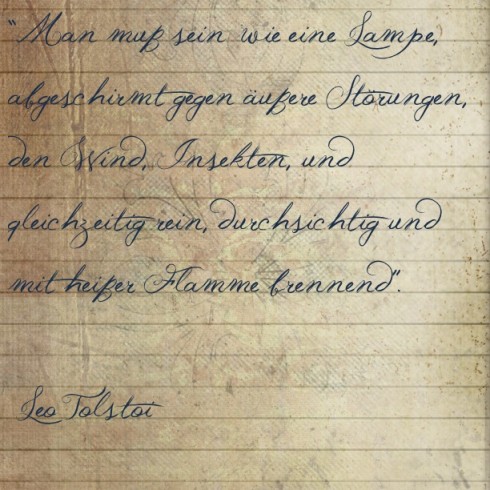 "Man muß sein wie eine Lampe,
abgeschirmt gegen äußere Störungen,
den Wind, Insekten, und
gleichzeitig rein, durchsichtig und
mit heißer Flamme brennend".
Leo Tolstoi